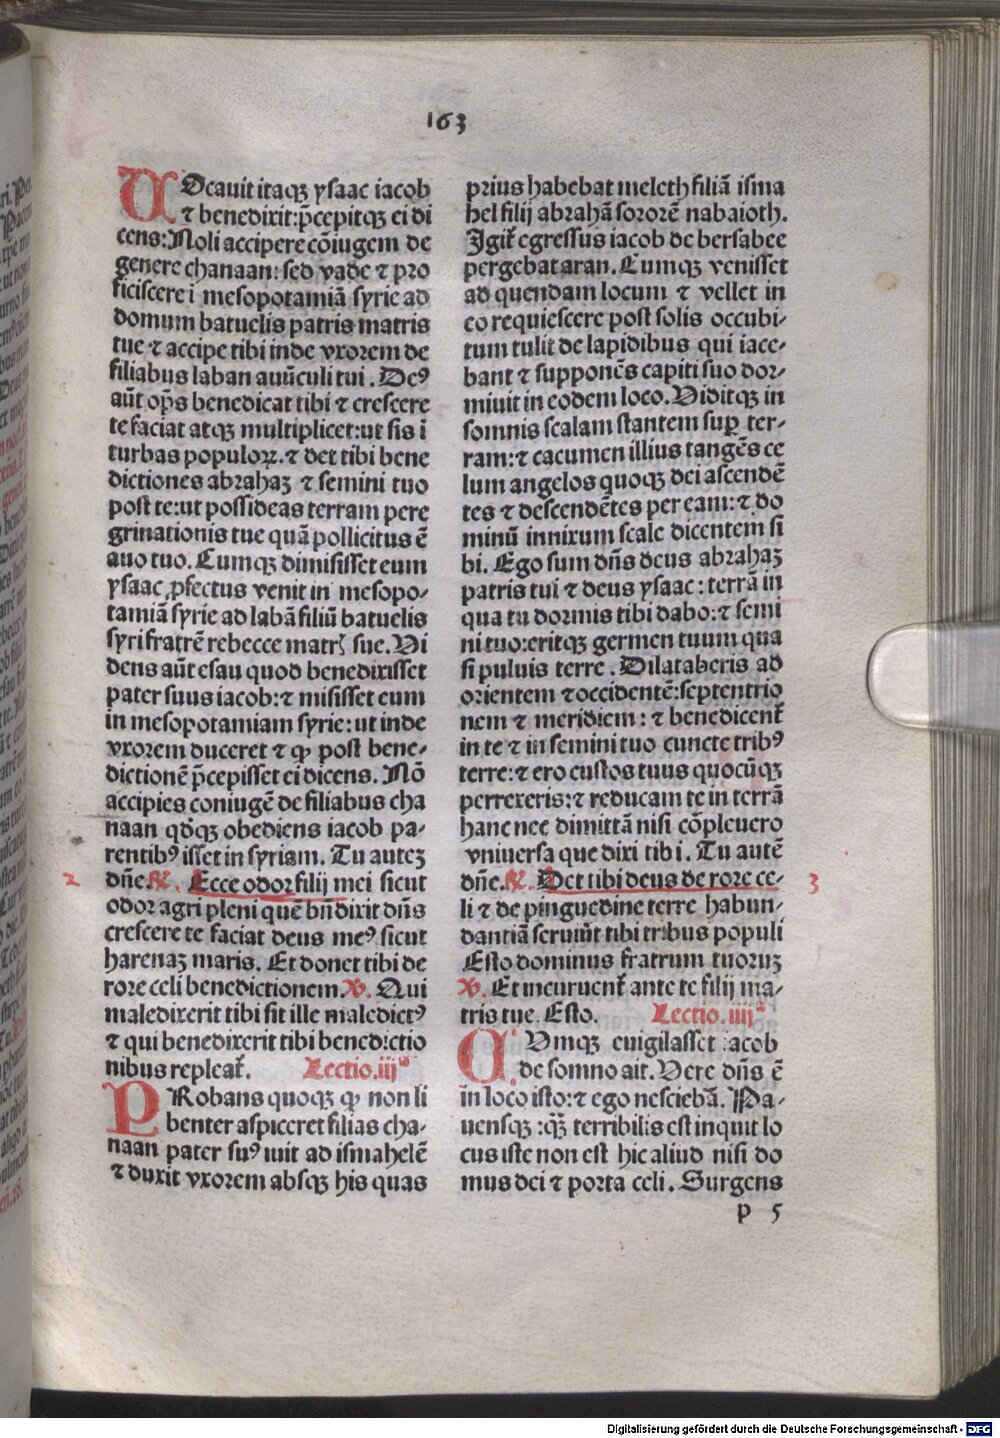 163
VOcauit itaqȝ ysaac iacob
⁊ benedixit:p̄cepitqȝ ei di
cens:Noli accipere cōiugem de
genere chanaan: sed vade ⁊ pro
ficiscere i mesopotamiā syrie ad
domum batuelis patris matris
tue ⁊ accipe tibi inde vxorem de
filiabus laban auūculi tui. Deꝰ
aūt op̄s benedicat tibi ⁊ crescere
te faciat atqȝ multiplicet:ut sis ī
turbas populoꝝ. ⁊ det tibi bene
dictiones abrahaȝ ⁊ semini tuo
post te:ut possideas terram pere
grinationis tue quā pollicitus ē
auo tuo. Cumqȝ dimisisset eum
ysaac ꝓfectus venit in mesopo-
tamiā syrie ad labā filiū batuelis
syri fratrē rebecce matrꝭ sue. Vi
dens aūt esau quod benedixisset
pater suus iacob:⁊ misisset eum
in mesopotamiam syrie: ut inde
vxorem duceret ⁊ ꝙ post bene-
dictionē p̄cepisset ei dicens. Nō
accipies coniugē de filiabus cha
naan qd̄qȝ obediens iacob pa-
rentibꝰ isset in syriam. Tu auteȝ
2 dn̄e.℟. Ecce odor filij mei sicut
odor agri pleni quē bn̄dixit dn̄s
crescere te faciat deus meꝰ sicut
harenaȝ maris. Et donet tibi de
rore celi benedictionem.℣. Qui
maledixerit tibi sit ille maledictꝰ
⁊ qui benedixerit tibi benedictio
nibus repleat᷑. Lectio.iijᵃ
PRobans quoqȝ ꝙ non li
benter aspiceret filias cha-
naan pater suꝰ iuit ad ismahelē
⁊ duxit vxorem absqȝ his quas
prius habebat meleth filiā isma
hel filij abrahā sororē nabaioth.
Igit᷑ egressus iacob de bersabee
pergebat aran. Cumqȝ venisset
ad quendam locum ⁊ vellet in
eo requiescere post solis occubi-
tum tulit de lapidibus qui iace-
bant ⁊ supponēs capiti suo dor-
miuit in eodem loco. Viditqȝ in
somnis scalam stantem suꝑ ter-
ram:⁊ cacumen illius tangēs ce
lum angelos quoqȝ dei ascendē
tes ⁊ descendētes per eam:⁊ do
minū innixum scale dicentem si
bi. Ego sum dn̄s deus abrahaȝ
patris tui ⁊ deus ysaac: terrā in
qua tu dormis tibi dabo:⁊ semi
ni tuo:eritqȝ germen tuum qua
si puluis terre. Dilataberis ad
orientem ⁊ occidentē:septentrio
nem ⁊ meridiem: ⁊ benedicent᷑
in te ⁊ in semini tuo cuncte tribꝰ
terre:⁊ ero custos tuus quocūqȝ
perrexeris:⁊ reducam te in terrā
hanc nec dimittā nisi cōpleuero
vniuersa que dixi tibi. Tu autē
dn̄e.℟. Det tibi deus de rore ce- 3
li ⁊ de pinguedine terre habun-
dantiā seruiūt tibi tribus populi
Esto dominus fratrum tuoruȝ
℣. Et incuruent᷑ ante te filij ma-
tris tue. Esto. Lectio.iiijᵃ
CVmqȝ euigilasset iacob
de somno ait. Vere dn̄s ē
in loco isto:⁊ ego nesciebā. Pa-
uensqȝ :qȝ̄ terribilis est inquit lo
cus iste non est hic aliud nisi do
mus dei ⁊ porta celi. Surgens
p 5
Digitalisierung gefördert durch die Deutsche Forschungsgemeinschaft - DFG